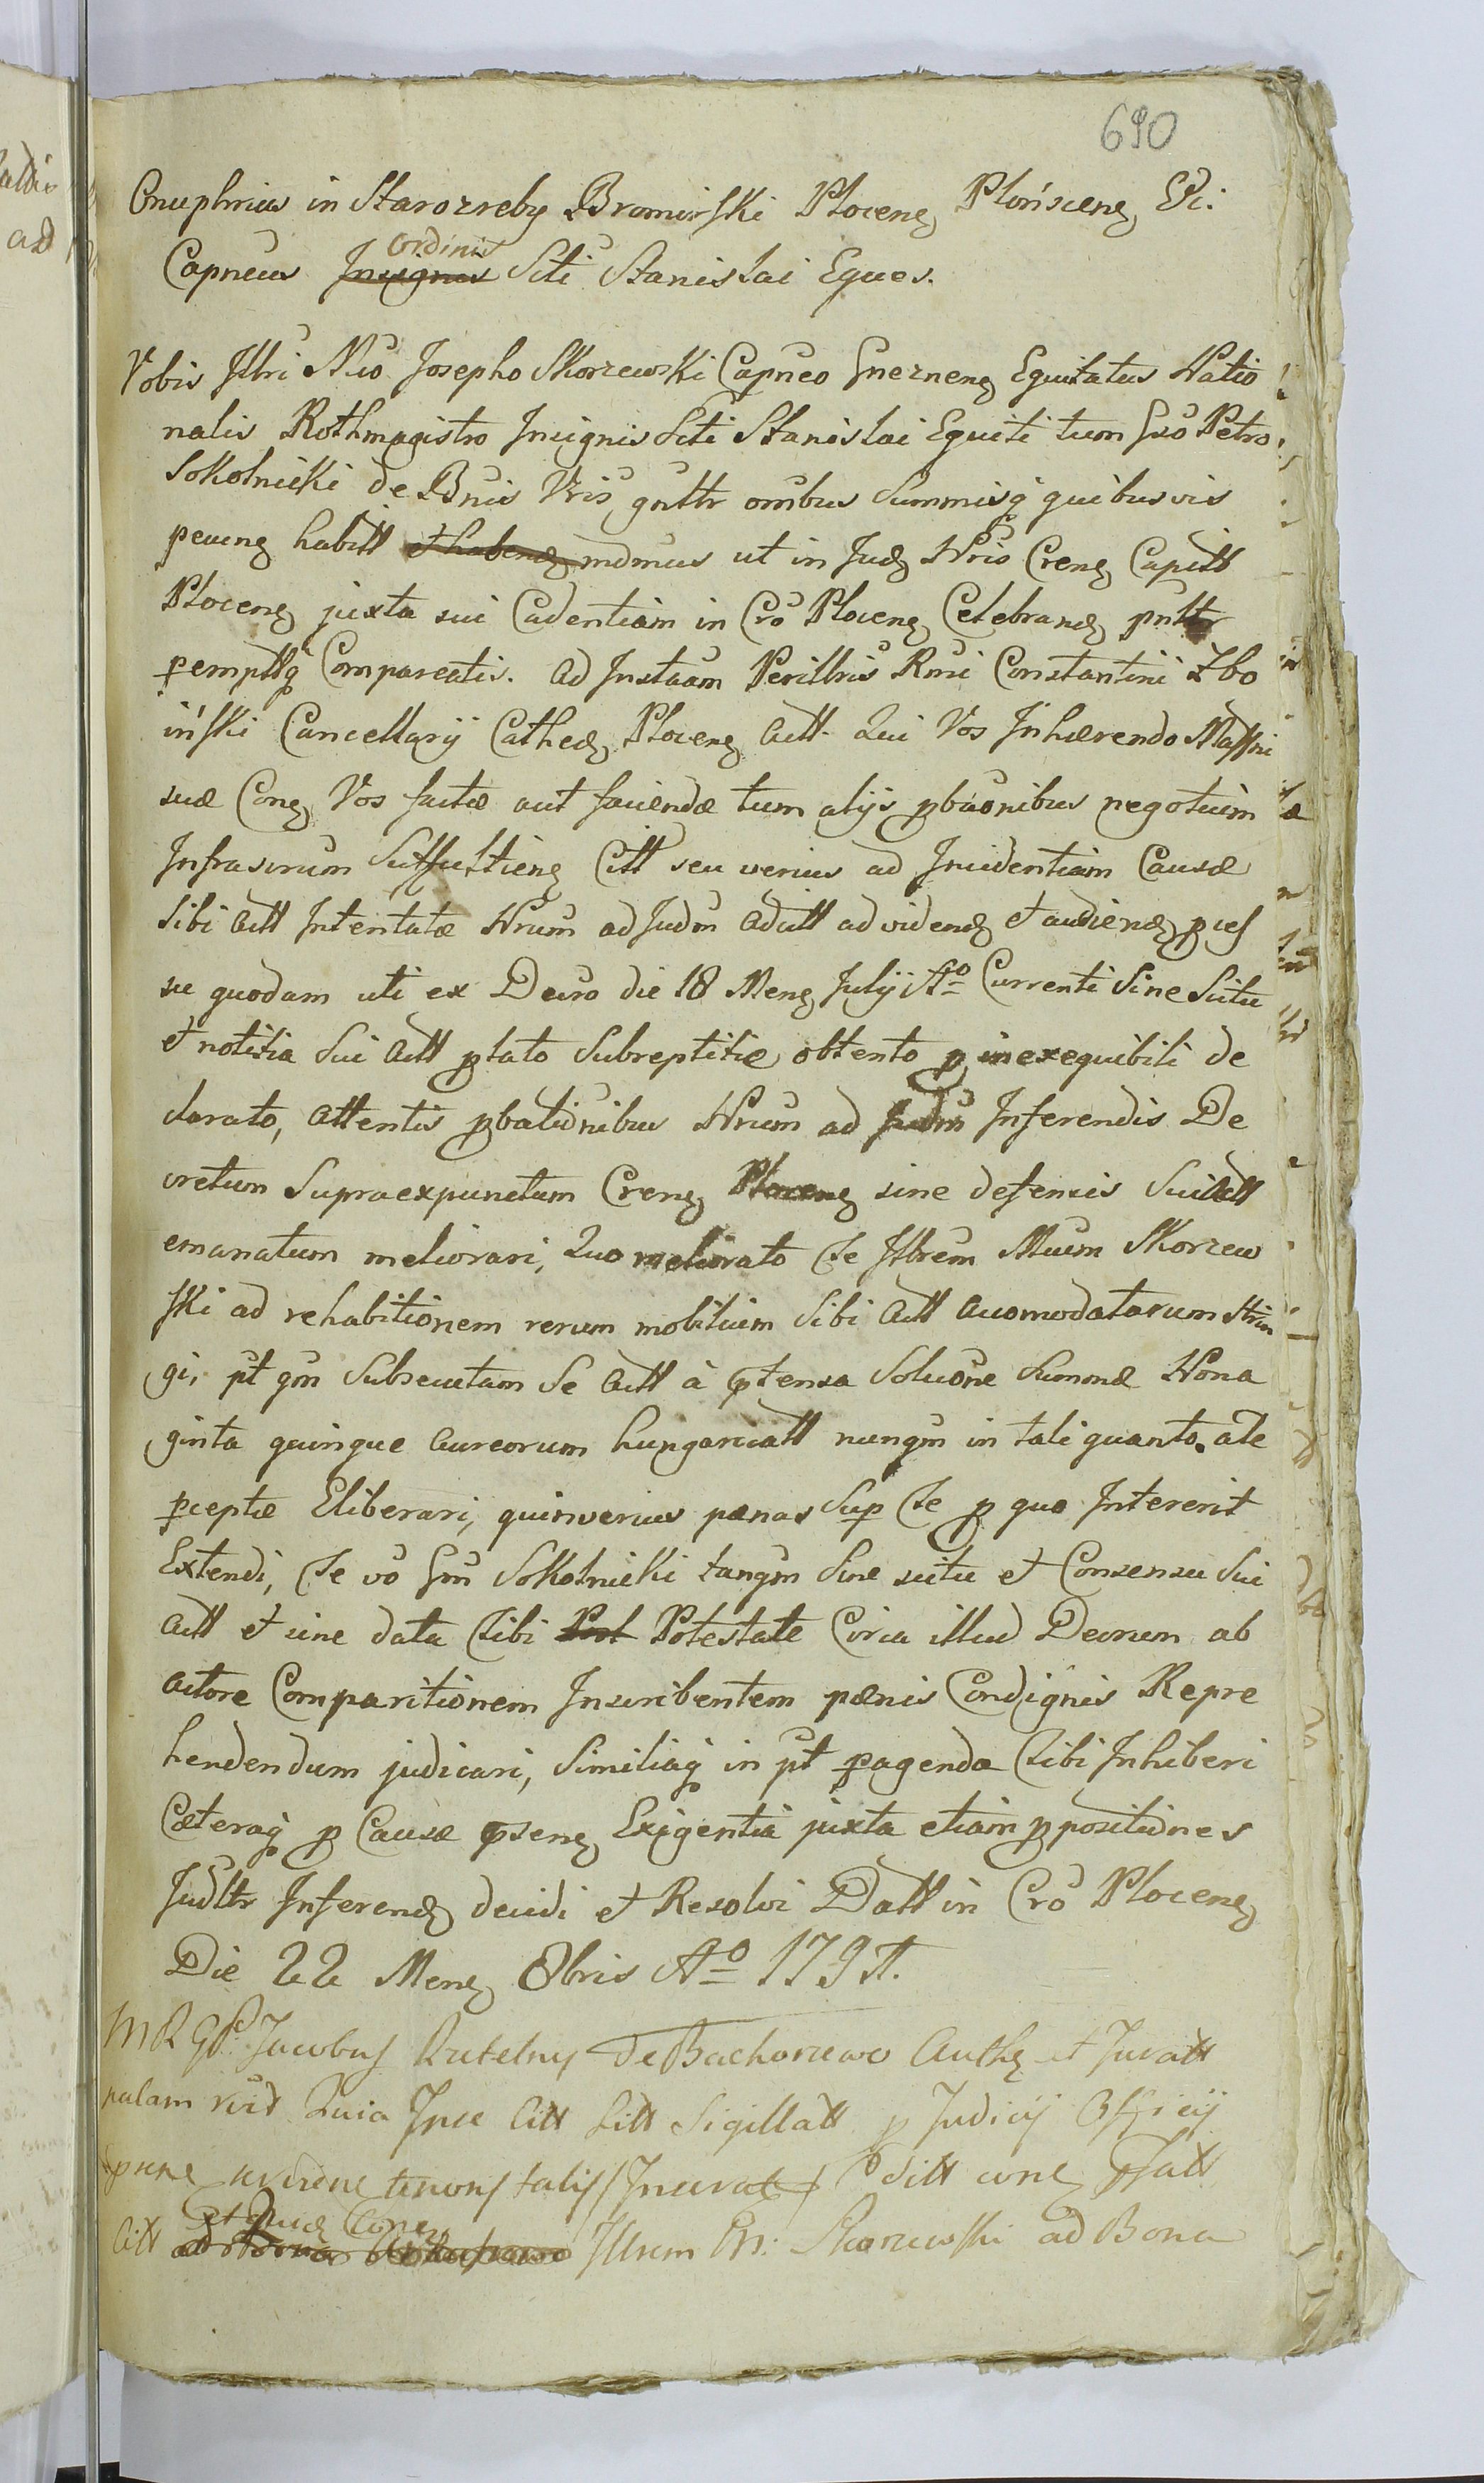 690
Onuphrius in Starozreby Bromirski Plocenꝫ Plońscenꝫ Ec.
Capneus Insignis ordinis Scti Stanislai Eques.
Vobis Illri Mco Josepho Skorzewski Capneo Gneznenꝫ Equitatus Natio
nalis Rothmagistro Insignis Scti Stanislai Equiti tum Gso Petro
Sokolnicki de Bnis Vris gnltr omibus Summisq̃ quibusvis
pecunꝫ habitt et habenꝫ mdmus ut in Judꝫ Nris Crenꝫ Capitt
Plocenꝫ juxta sui Cadentiam in Cro Plocenꝫ Celebranꝫ pnltr
pempttq̃ Compareatis. Ad Instaam Perillris Rmi Constantini Zbo
iński Cancellarij Cathedꝫ Plocenꝫ Actt. Qui Vos Inhærendo Maffni
suæ Conꝫ Vos factæ aut faciendæ tum alijs pbaonibus negotium
Infrascrum Suffultienꝫ Citt seu verius ad Incidentiam Causæ
Sibi Actt Intentatæ Nrum ad Judm Adcitt ad videnꝫ et audienꝫ pces
su quodam uti ex Decro die 18 Menꝫ Julij Ao Currenti Sine Scitu
et notitia Sui Actt plato Subreptitie obtento p inexequibili de
clarato, attentis pbationibus Nrum ad Judm Inferendis De
cretum Supraexpunctum Crenꝫ Plocenꝫ sine defensis Sui Actt
emanatum meliorari, Quo meliorato Te Illrem Mcum Skorzew
ski ad rehabitionem rerum mobilium Sibi Actt accomodatarum Strin
gi, pt qm Subsecutam Se Actt à ptensa Soluone Summæ Nona
ginta quinque aureorum hungaricatt nunqm in tali quanto a Te
pceptæ Eliberari, quinverius pænas Sup Te p quo Intererit
Extendi, Te vo Gsm Sokolnicki tanqm Sine scitu et Consensu Sui
Actt et sine data Tibi Pot Potestate Circa illud Decrum ab
actore Comparitionem Inscribentem pænis Condignis Repre
hendendum judicari, Similiaq̃ in pt pagenda Tibi Inhiberi
Cæteraq̃ p Causæ psenꝫ Exigentia juxta etiam ppositiones
Judltr Inferenꝫ decidi et Resolvi Datt in Cro Plocenꝫ
Die 22 Menꝫ 8bris Ao 1791.
Jacobus Rutelny de Bachorzewo Authꝫ et Juratt
palam Quia Ipse Citt Litt Sigillatt p Judicij Officij
tenoris talis
Citt et Juꝫ Conꝫ ad Bona Illrem Skorzewski ad Bona